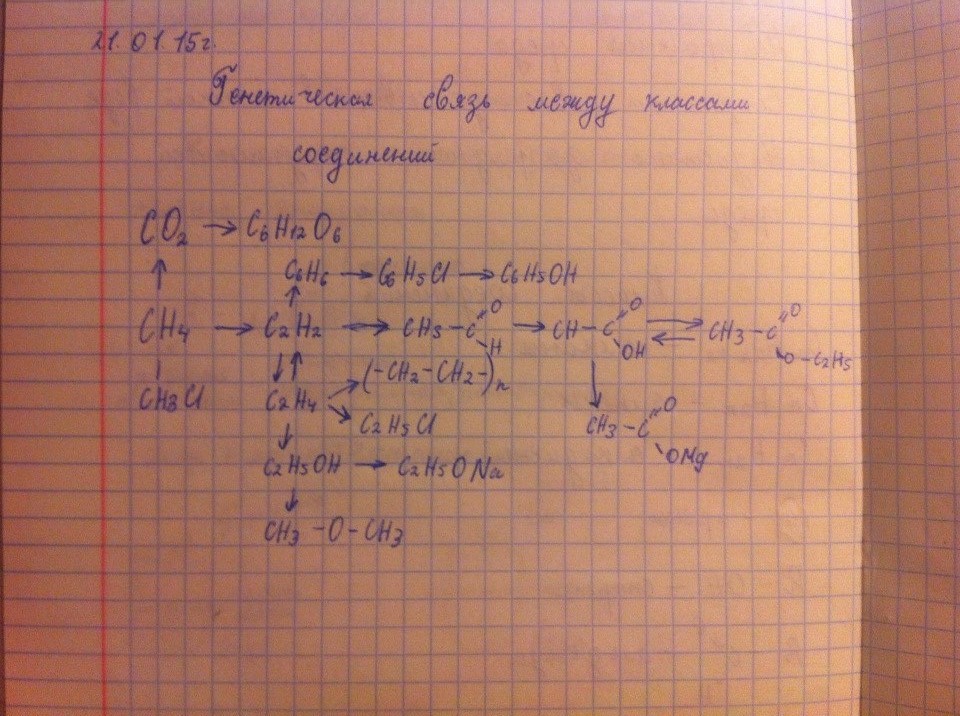 21.01.15г.
Генетическая связь между классами
соединений
CO2 → C6H12O6
↑
C6H6 → C6H5Cl → C6H5OH
↑
CH4 → C2H2 → CH3-C(=O)-H → CH-C(=O)-OH ⇄ CH3-C(=O)-O-C2H5
↓↑
(-CH2-CH2-)n
CH3Cl
C2H4
C2H5Cl
CH3-C(=O)-OMg
↓
C2H5OH → C2H5ONa
↓
CH3-O-CH3